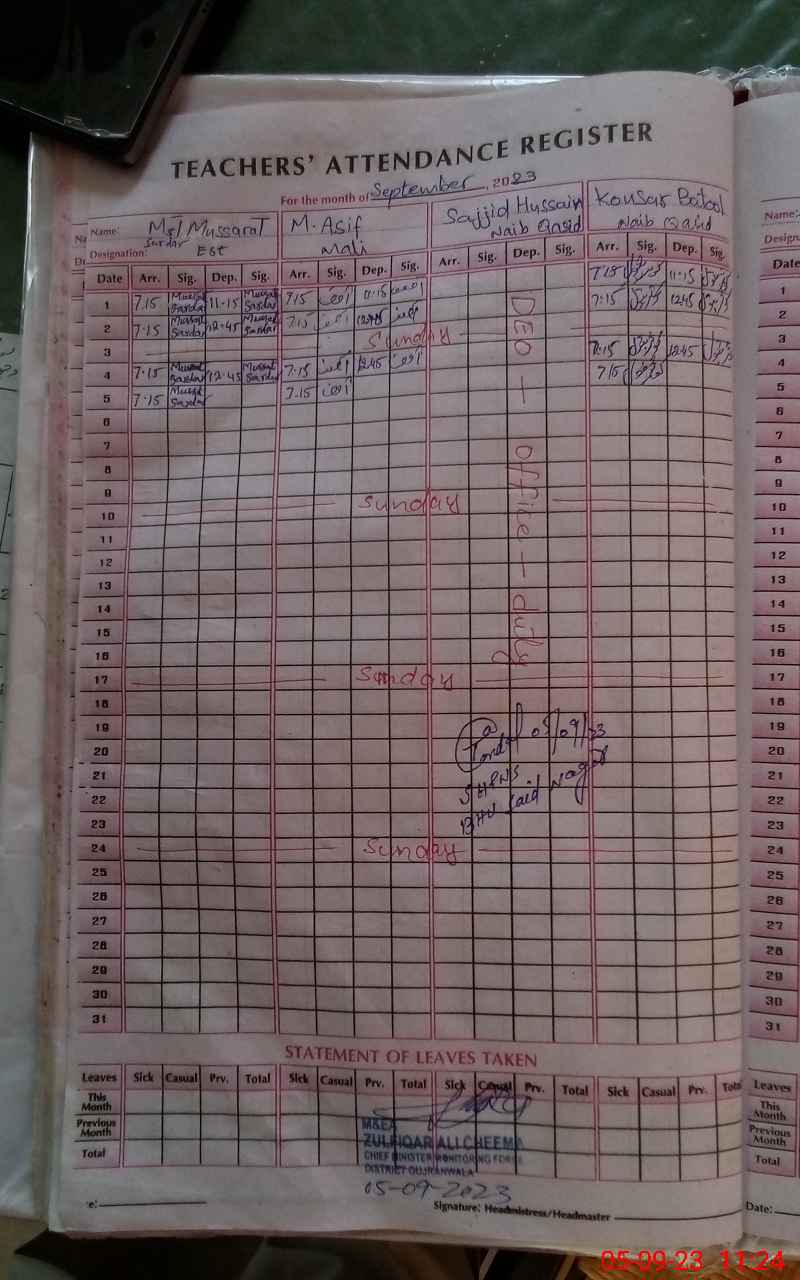 TEACHERS' ATTENDANCE REGISTER
For the month of September, 2023
Name: Mst Mussarat Sardar M. Asif Sajjid Hussain Kousar Batool
Designation: Est Mali Naib Qasid Naib Qasid
Date Arr. Sig. Dep. Sig. Arr. Sig. Dep. Sig. Arr. Sig. Dep. Sig. Arr. Sig. Dep. Sig.
1 7.15 Mussarat Sardar 11-15 Mussarat Sardar 7.15 11.15 7.15 11.15
2 7.15 Mussarat Sardar 12.45 Mussarat Sardar 7.15 12.45 7:15 12.45
3 Sunday
4 7.15 Mussarat Sardar 12.45 Mussarat Sardar 7.15 12.45 7:15 12.45
5 7.15 Mussarat Sardar 7.15 7.15
6
7
8
9
10 Sunday
11
12
13
14
15
16
17 Sunday
18
19
20
21
22
23
24 Sunday
25
26
27
28
29
30
31
DEO - office - duty
05/09/23
SH&NS
BHU Said Nagar
STATEMENT OF LEAVES TAKEN
Leaves Sick Casual Prv. Total Sick Casual Prv. Total Sick Casual Prv. Total Sick Casual Prv. Total
This Month
Previous Month
Total
M&EA
ZULFIQAR ALI CHEEMA
CHIEF MINISTER MONITORING FORCE
DISTRICT GUJRANWALA
05-09-2023
Signature: Headmistress/Headmaster
Name:
Date
1
2
3
4
5
6
7
8
9
10
11
12
13
14
15
16
17
18
19
20
21
22
23
24
25
26
27
28
29
30
31
Leaves
This Month
Previous Month
Total
Date:
05-09-23 11:24